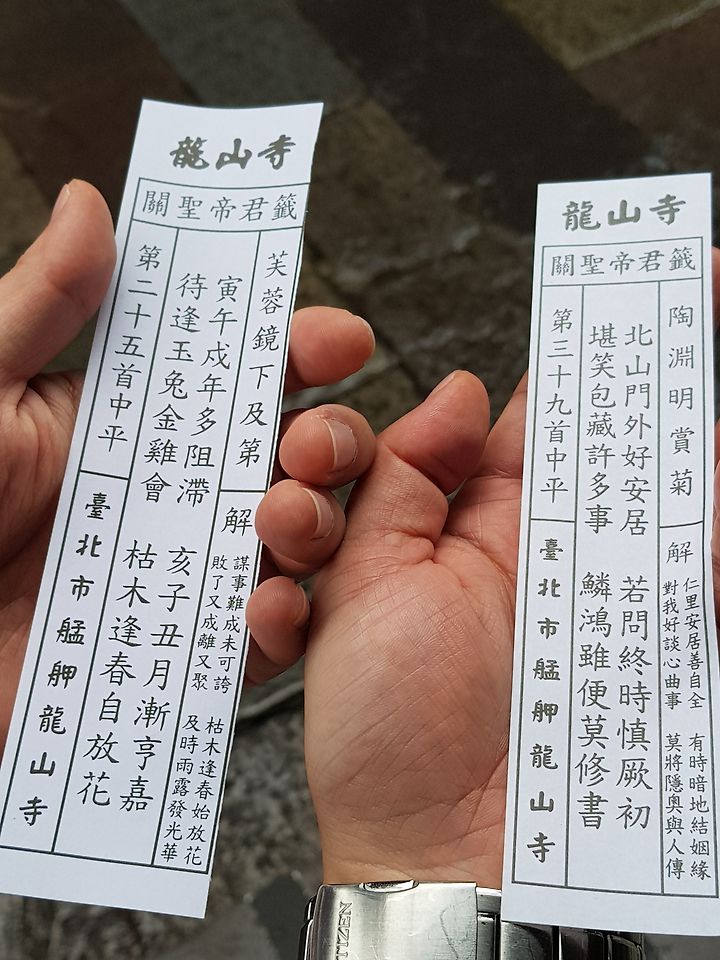 龍山寺
關聖帝君籤
芙蓉鏡下及第
解
謀事難成未可誇 枯木逢春始放花
敗了又成離又聚 及時雨露發光華
寅午戍年多阻滯 亥子丑月漸亨嘉
待逢玉兔金雞會 枯木逢春自放花
第二十五首中平
臺北市艋舺龍山寺
龍山寺
關聖帝君籤
陶淵明賞菊
解
仁里安居善自全 有時暗地結姻緣
對我好談心曲事 莫將隱奧與人傳
北山門外好安居 若問終時慎厥初
堪笑包藏許多事 鱗鴻雖便莫修書
第三十九首中平
臺北市艋舺龍山寺
TIZEN